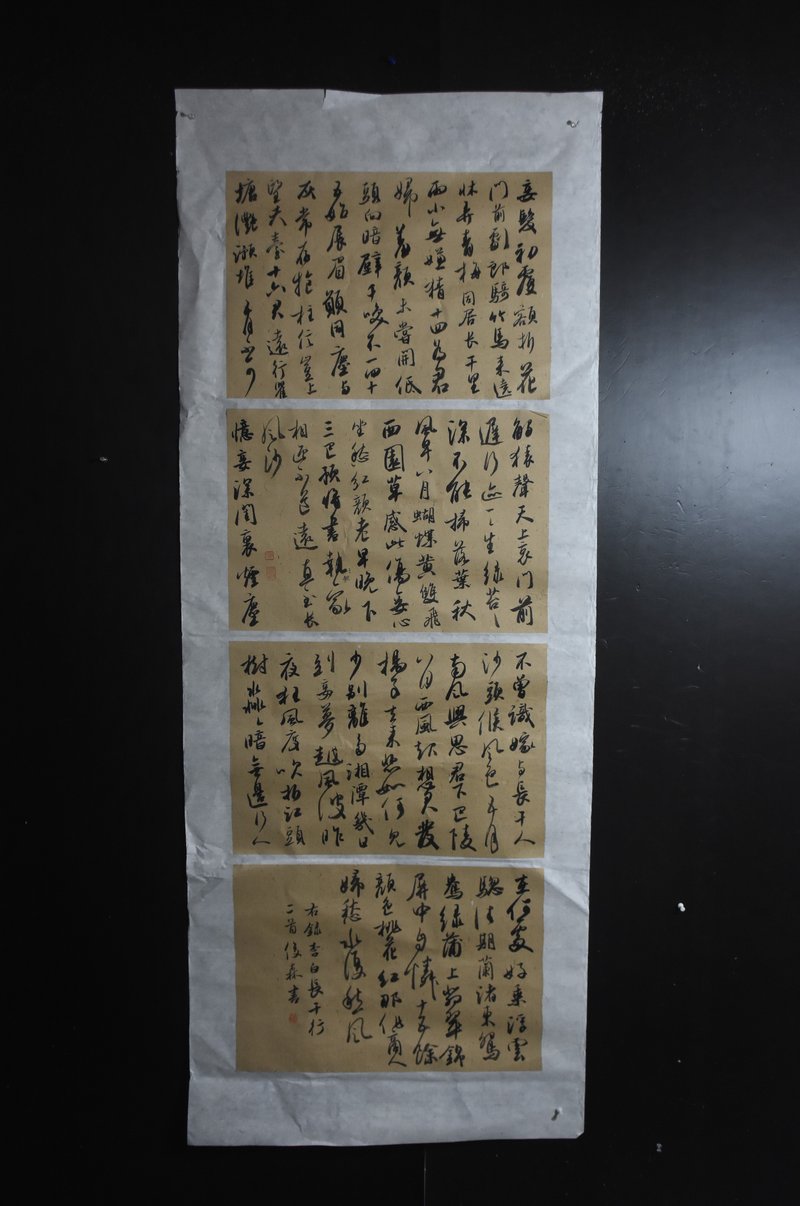 妾髮初覆額折花
門前劇郎騎竹馬來遶
牀弄青梅同居長干里
兩小無嫌猜十四為君
婦羞顏未嘗開低
頭向暗壁千喚不一回十
五始展眉願同塵與
灰常存抱柱信豈上
望夫臺十六君遠行瞿
塘灩澦堆五月不可
觸猿聲天上哀門前
遲行跡一〻生綠苔〻
深不能掃落葉秋
風早八月蝴蝶黃雙飛
西園草感此傷妾心
坐愁紅顏老早晚下
三巴預將書報家
相迎不道遠直至長
風沙
憶妾深閨裏煙塵
不曾識嫁與長干人
沙頭候風色五月
南風興思君下巴陵
八月西風起想君發
揚子去來悲如何見
少別離多湘潭幾日
到妾夢越風波昨
夜狂風度吹折江頭
樹淼〻暗無邊行人
在何處好乘浮雲
驄佳期蘭渚東鴛
鴦綠蒲上翡翠錦
屏中自憐十五餘
顏色桃花紅那作商人
婦愁水復愁風
右錄李白長干行
二首俊森書